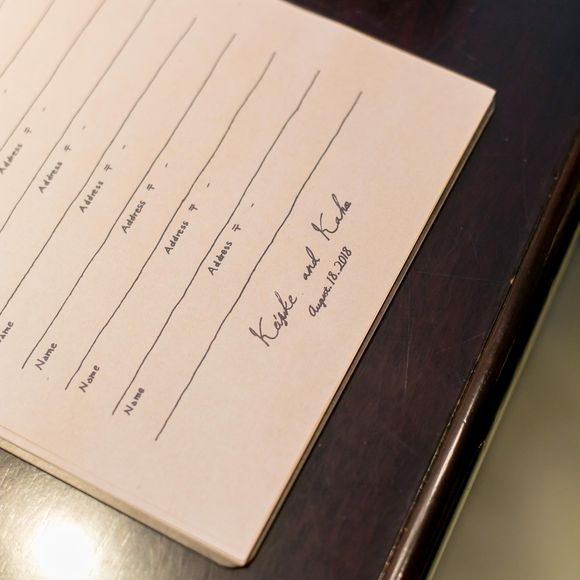 Address 〒 -
Address 〒 -
Name Address 〒 -
Name Address 〒 -
Name Address 〒 -
Name Address 〒 -
and
August.18.2018